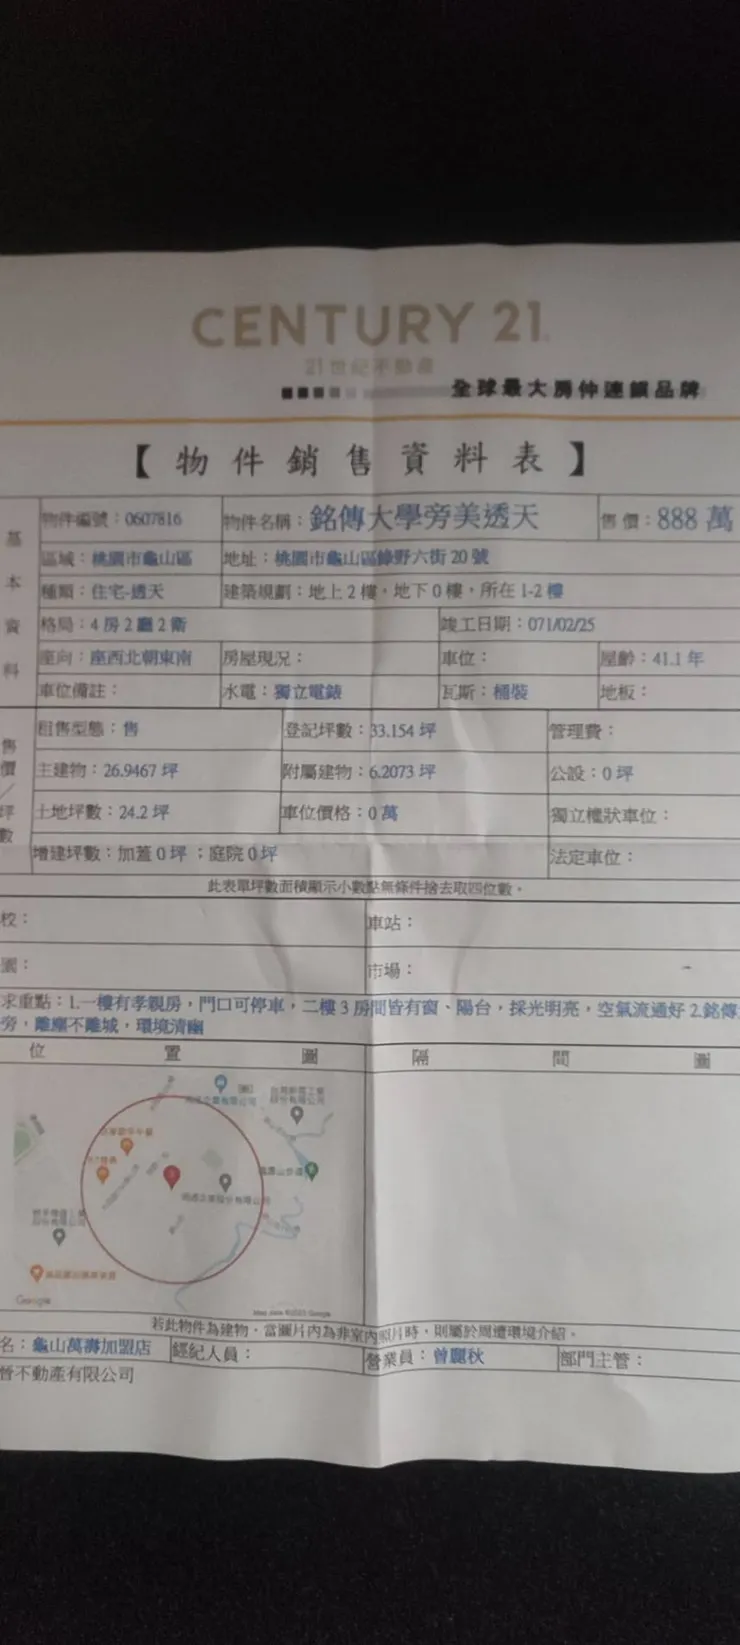 CENTURY 21
21世紀不動產
全球最大房仲連鎖品牌
【物件銷售資料表】
基本資料
物件編號：0607816 物件名稱：銘傳大學旁美透天 售價：888 萬
區域：桃園市龜山區 地址：桃園市龜山區綠野六街 20 號
種類：住宅-透天 建築規劃：地上 2 樓，地下 0 樓，所在 1-2 樓
格局：4 房 2 廳 2 衛 竣工日期：071/02/25
座向：座西北朝東南 房屋現況： 車位： 屋齡：41.1 年
車位備註： 水電：獨立電錶 瓦斯：桶裝 地板：
售價/坪數
租售型態：售 登記坪數：33.154 坪 管理費：
主建物：26.9467 坪 附屬建物：6.2073 坪 公設：0 坪
土地坪數：24.2 坪 車位價格：0 萬 獨立權狀車位：
增建坪數：加蓋 0 坪 ；庭院 0 坪 法定車位：
此表單坪數面積顯示小數點無條件捨去取四位數。
校： 車站：
園： 市場：
求重點：1.一樓有孝親房，門口可停車，二樓 3 房間皆有窗、陽台，採光明亮，空氣流通好 2.銘傳
旁，離塵不離城，環境清幽
位置圖 隔間圖
Google
若此物件為建物，當圖片內為非室內照片時，則屬於周遭環境介紹。
名：龜山萬壽加盟店 經紀人員： 營業員：曾麗秋 部門主管：
晉不動產有限公司